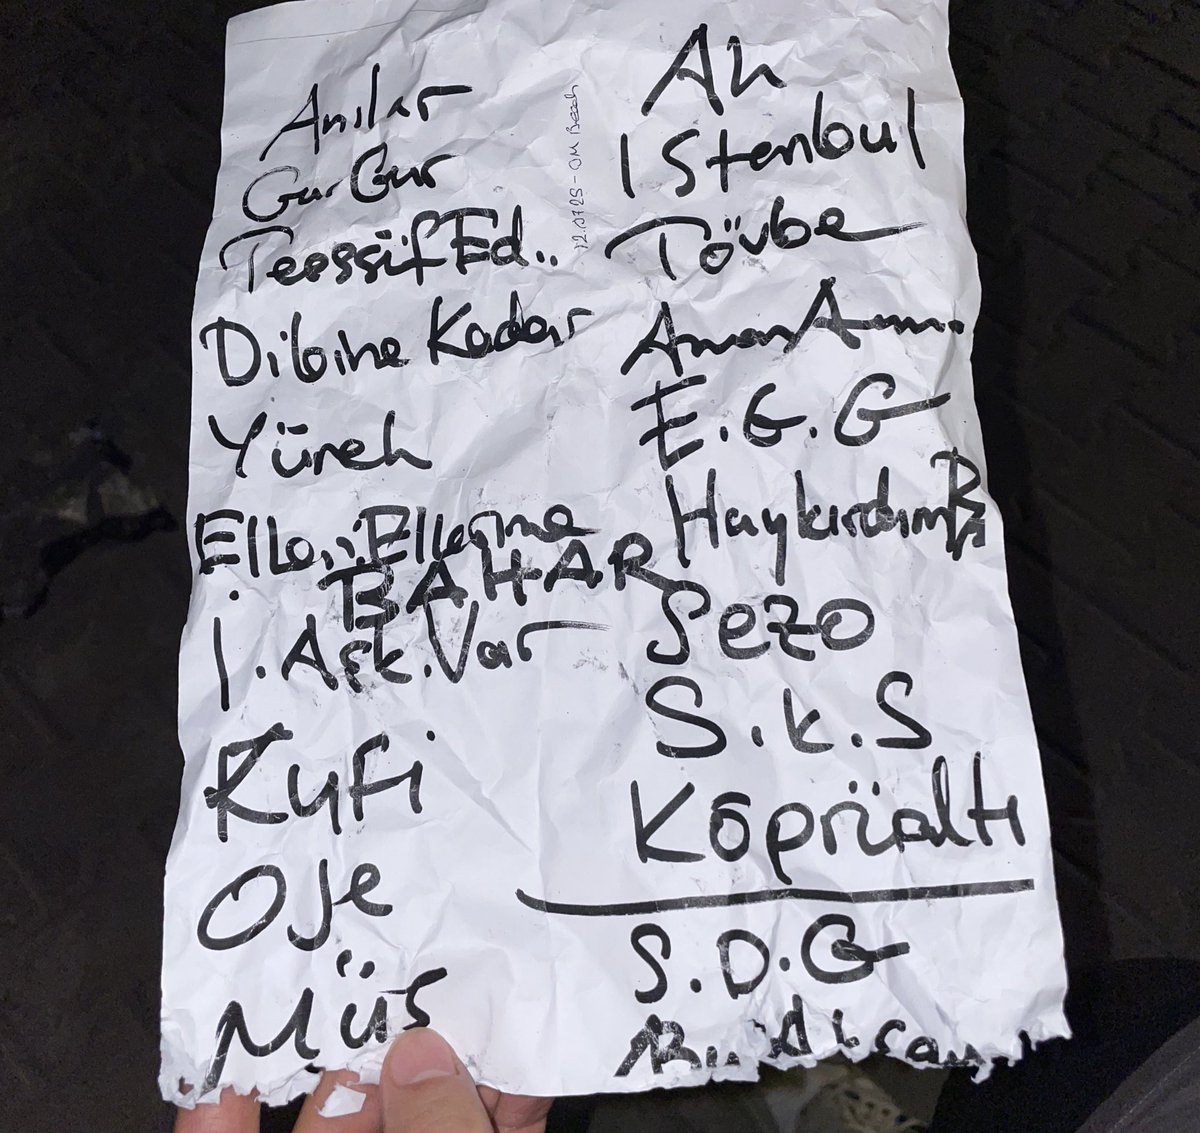 Anılar
GurGur
TeessüfEd..
Dibine Kadar
Yürek
Elleri Ellerime
BAHAR
İ. Aşk. Var
Kufi
Oje
Müs
12.07.25 - OM Beach
Ah
İstanbul
Tövbe
Aman Aman.
E.G.G
Haykırdım
Sezo
S.k.S
Köprüaltı
S.D.G